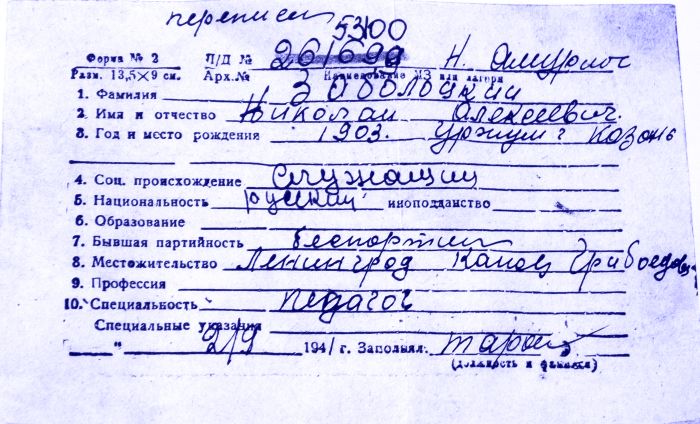 переписан
53100
Форма № 2 П/Д № 261690 Н. Амурлаг
Разм. 13,5×9 см. Арх.№ Наименование МЗ или лагеря
1. Фамилия Заболоцкий
2. Имя и отчество Николай Алексеевич.
3. Год и место рождения 1903. Уржум г Казань
4. Соц. происхождение Служащий
5. Национальность русский иноподданство
6. Образование
7. Бывшая партийность беспартий
8. Местожительство Ленинград Канав Грибоедова
9. Профессия
10. Специальность педагог
Специальные указания
„ 2/9 1941 г. Заполнял
(должность и фамилия)